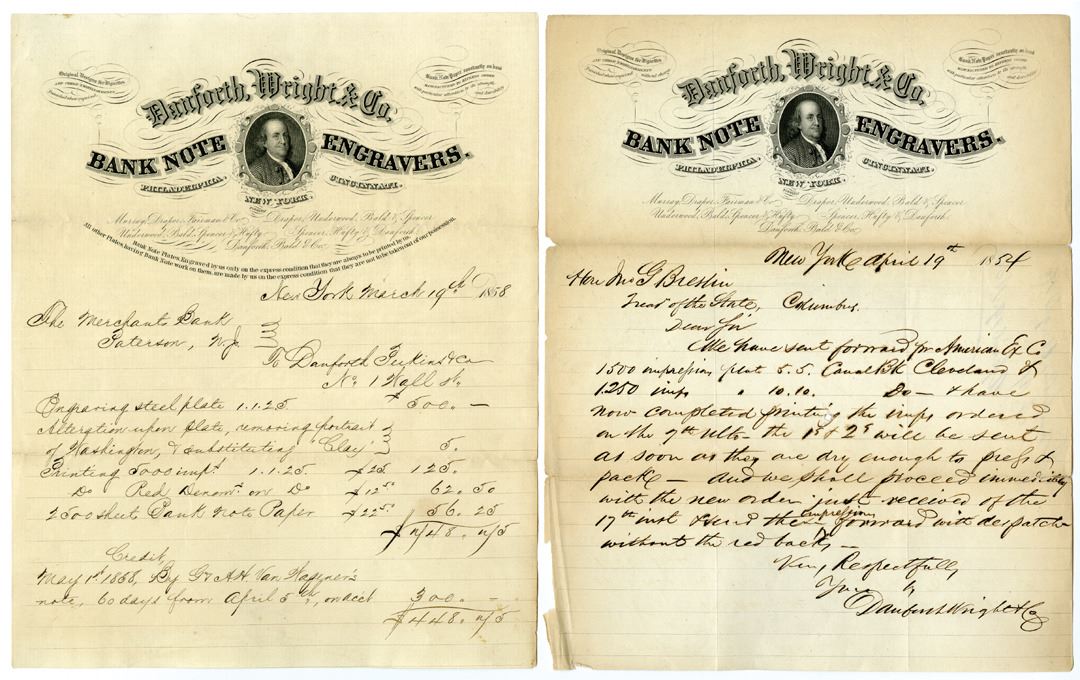 Original Designs for Vignettes
Danforth, Wright & Co.
Bank Note Paper constantly on hand
BANK NOTE ENGRAVERS.
PHILADELPHIA. CINCINNATI.
NEW YORK.
Murray, Draper, Fairman & Co. Draper, Underwood, Bald & Spencer
Underwood, Bald, Spencer & Hufty Spencer, Hufty & Danforth
Danforth, Bald & Co.
Bank Note Plates, Engraved by us only on the express condition that they are always to be printed by us.
All other Plates, having Bank Note work on them, are made by us on the express condition that they are not to be taken out of our possession.
New York March 19th 1858
The Merchants Bank
Paterson, N.J.
To Danforth Perkins & Co
No 1 Wall St.
Engraving steel plate 1.1.2.5. $ 500. —
Alteration upon plate, removing portrait
of Washington, & substituting "Clay" 5.
Printing 5000 impns 1.1.2.5 $25 125.
Do Red Denomn on Do $12 50 62. 50
2500 sheets Bank Note Paper $22 50 56. 25
$ 748. 75
Credit,
May 1st 1858, By G. A.H. Van
note, 60 days from April 5th, on acct 300. —
$ 448. 75
Original Designs for Vignettes
Danforth, Wright & Co.
Bank Note Paper constantly on hand
BANK NOTE ENGRAVERS.
PHILADELPHIA. CINCINNATI.
NEW YORK.
Murray, Draper, Fairman & Co. Draper, Underwood, Bald & Spencer
Underwood, Bald, Spencer & Hufty Spencer, Hufty & Danforth
Danforth, Bald & Co.
New York April 19th 1854
Hon Jno G Breslin
Treas of the State, Columbus.
Dear Sir
We have sent forward pr American Ex Co
1500 impressions plate 5.5. Canal Bk Cleveland &
1250 imps " 10.10. Do — & have
now completed printing the imps ordered
on the 7th Ulto — the 1s & 2s will be sent
as soon as they are dry enough to press &
pack — and we shall proceed immediately
with the new order just received of the
17th inst & send these impressions forward with despatch
without the red backs, —
Very Respectfully
Yours &c
Danforth Wright & Co